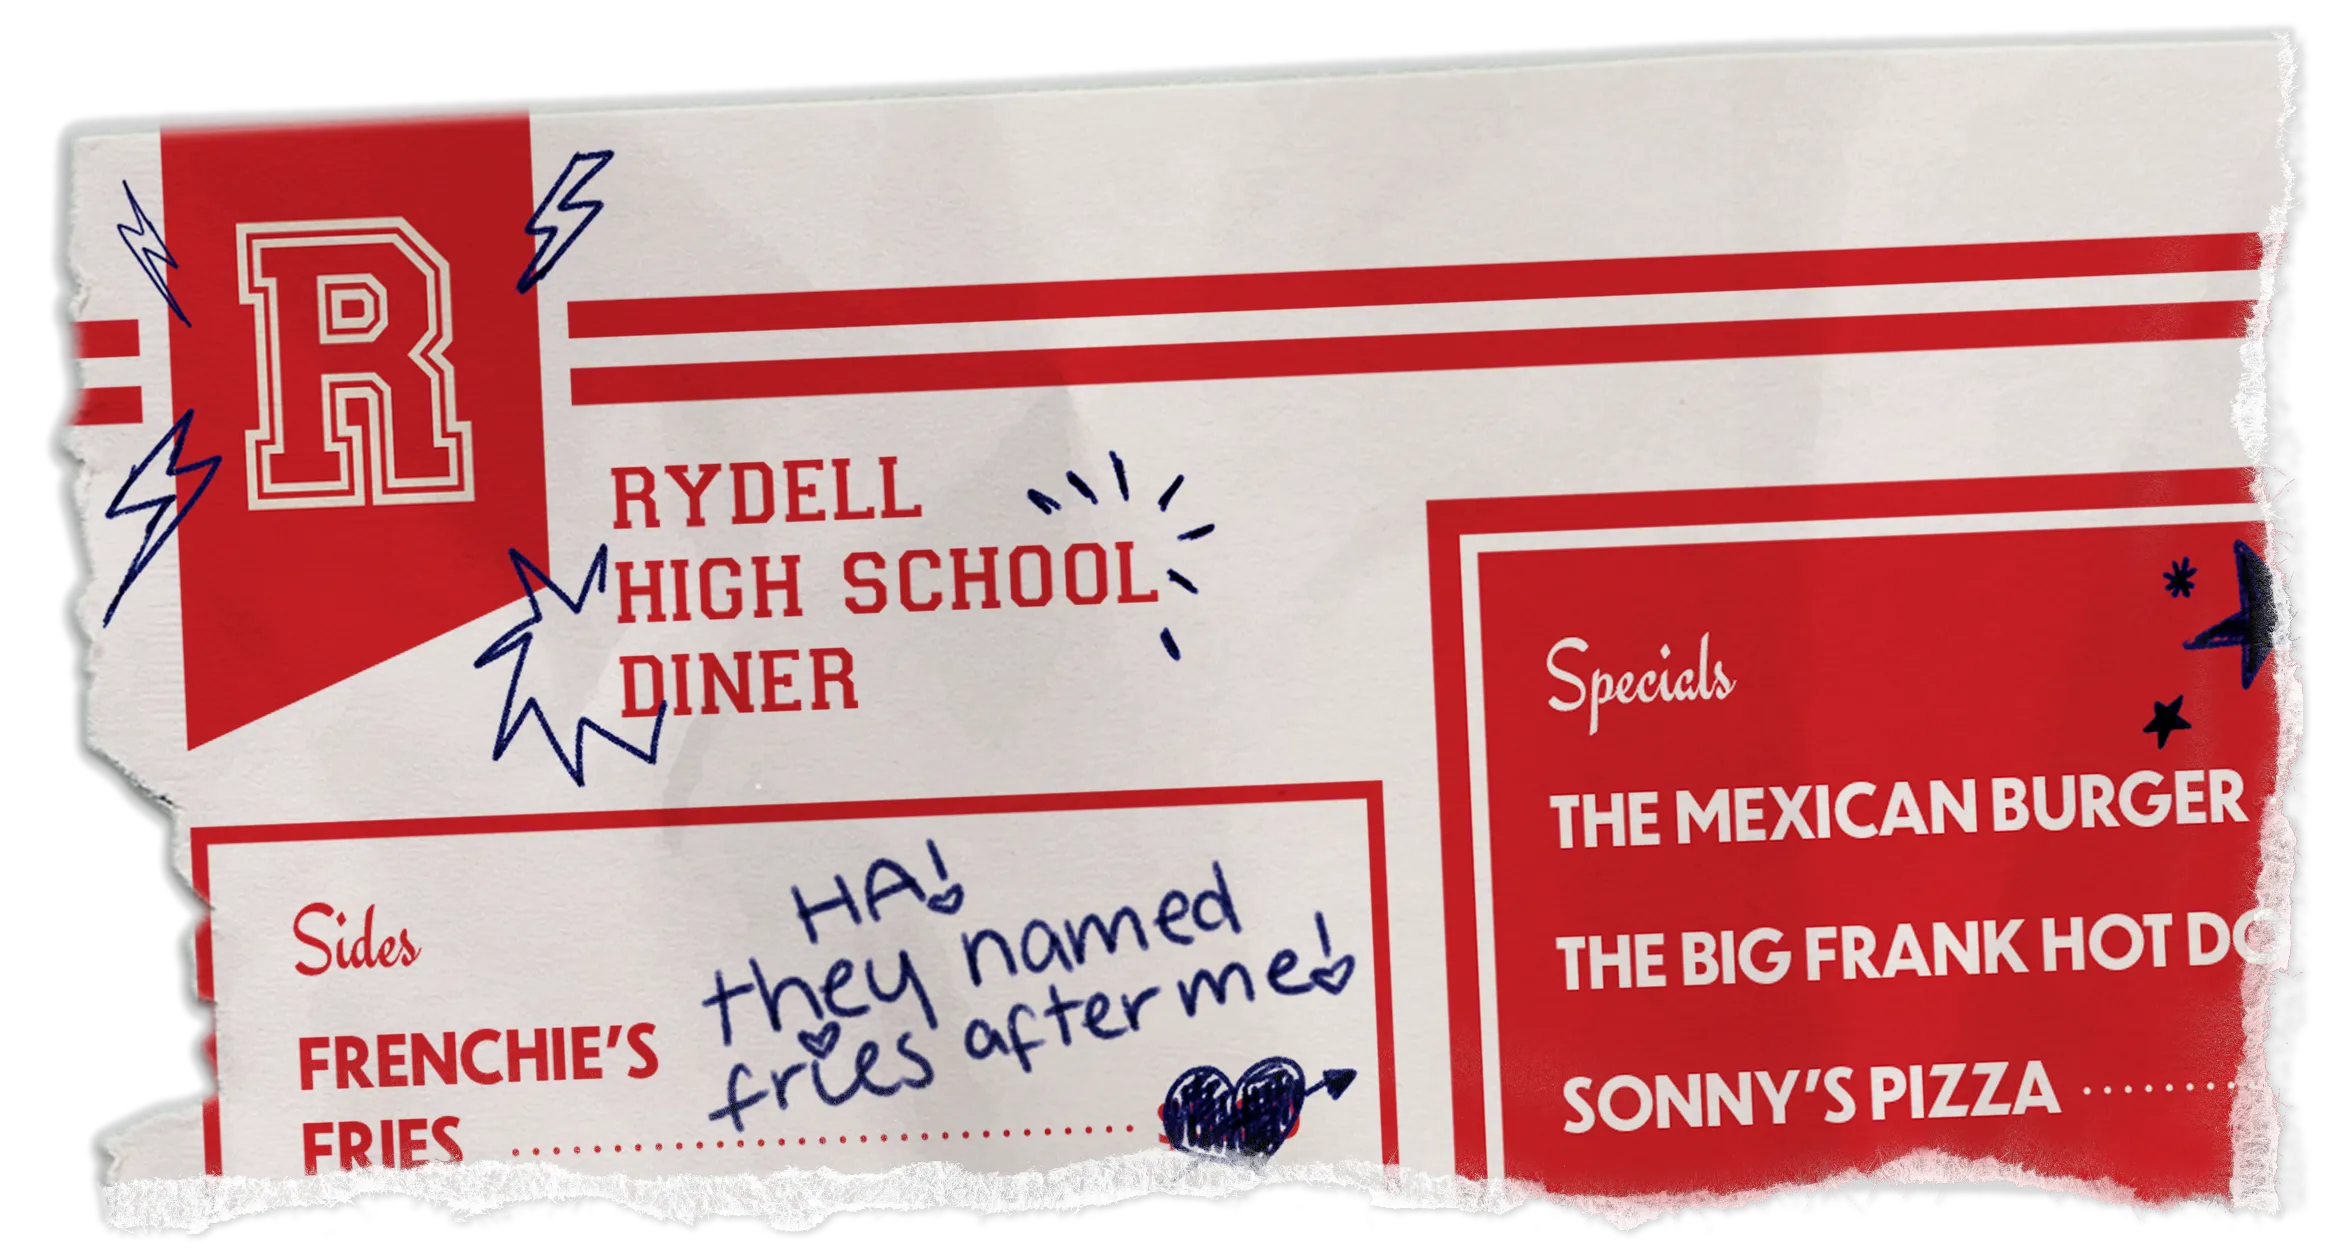 R
RYDELL
HIGH SCHOOL
DINER
Sides
FRENCHIE'S
FRIES
HA!
they named
fries after me!
Specials
THE MEXICAN BURGER
THE BIG FRANK HOT
SONNY'S PIZZA